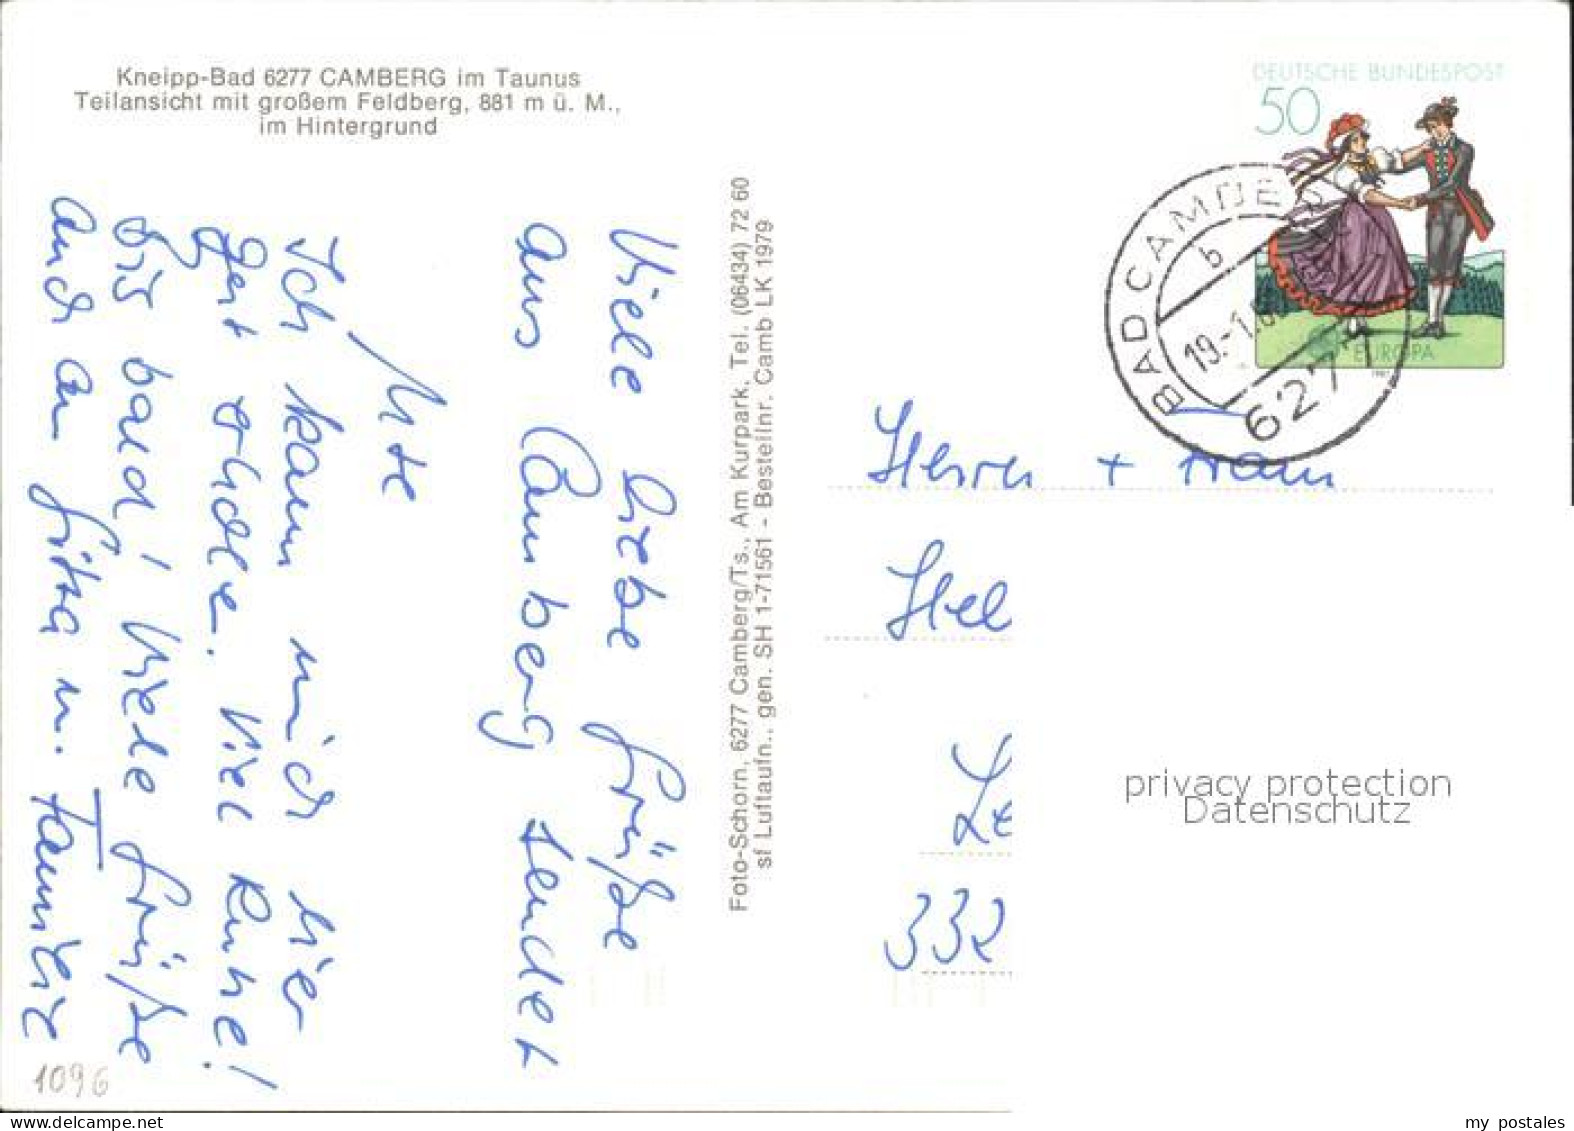 Kneipp-Bad 6277 CAMBERG im Taunus
Teilansicht mit großem Feldberg, 881 m ü. M.,
im Hintergrund
Viele liebe Grüße
aus Camberg sendet
Ute
Ich kann mich hier
gut erholen. Viel Ruhe!
Bis bald! Viele Grüße
auch an Gitta u. Familie
Foto-Schorn, 6277 Camberg/Ts., Am Kurpark, Tel. (06434) 72 60
sf Luftaufn., gen. SH 1-71561 - Bestellnr. Camb LK 1979
DEUTSCHE BUNDESPOST
50
EUROPA
1981
BAD CAMBE
b
19.-1.8
627
Herrn + Frau
Hel
Le
332
privacy protection
Datenschutz
1096
my postales